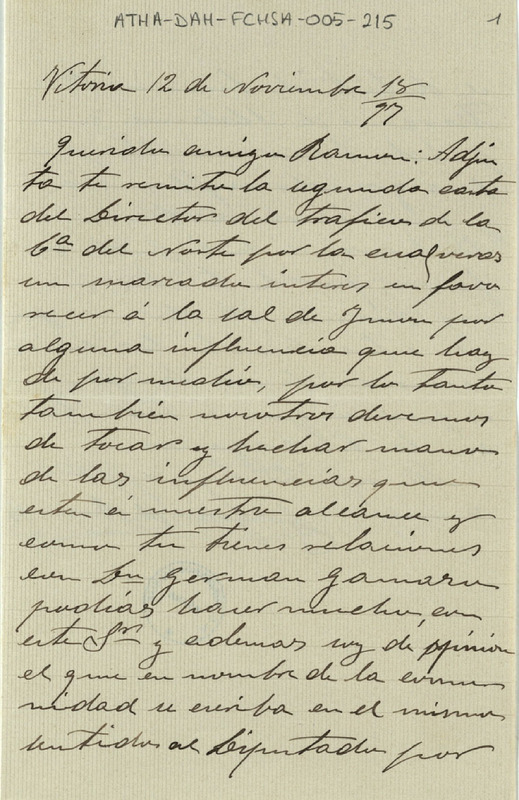 ATHA-DAH-FCHSA-005-215
1
Vitoria 12 de Noviembre 18
97
Querido amigo Ramon: Adjun
to te remito la segunda carta
del Director del trafico de la
Cª del Norte por la cual veras
un marcado interes en favo
recer á la sal de Imon por
alguna influencia que hay
de por medio, por lo tanto
también nosotros devemos
de tocar y hechar mano
de las influencias que
esten á nuestro alcance y
como tu tienes relaciones
con Dn German Gamazo
podias hacer mucho con
este Sr y ademas soy de opinion
el que en nombre de la comu
nidad se escriba en el mismo
sentido al Diputado por